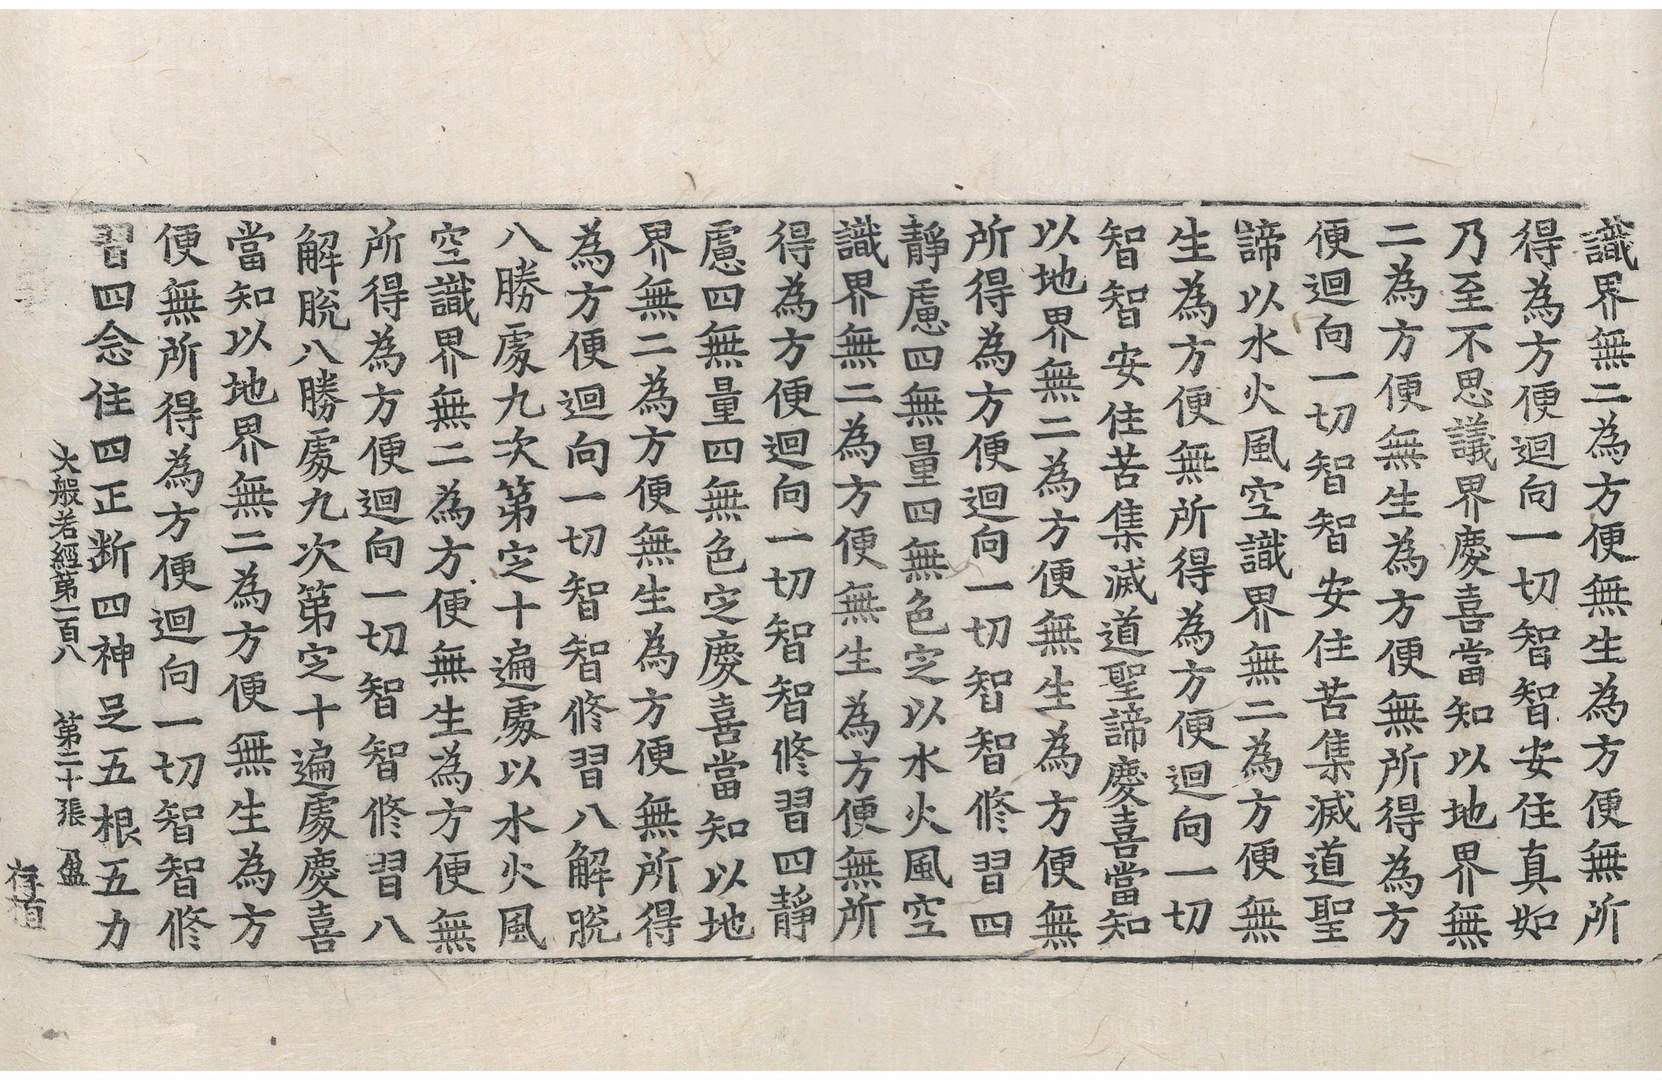 識界無二為方便無生為方便無所
得為方便迴向一切智智安住真如
乃至不思議界慶喜當知以地界無
二為方便無生為方便無所得為方
便迴向一切智智安住苦集滅道聖
諦以水火風空識界無二為方便無
生為方便無所得為方便迴向一切
智智安住苦集滅道聖諦慶喜當知
以地界無二為方便無生為方便無
所得為方便迴向一切智智修習四
靜慮四無量四無色定以水火風空
識界無二為方便無生為方便無所
得為方便迴向一切智智修習四靜
慮四無量四無色定慶喜當知以地
界無二為方便無生為方便無所得
為方便迴向一切智智修習八解脫
八勝處九次第定十遍處以水火風
空識界無二為方便無生為方便無
所得為方便迴向一切智智修習八
解脫八勝處九次第定十遍處慶喜
當知以地界無二為方便無生為方
便無所得為方便迴向一切智智修
習四念住四正断四神足五根五力
大般若經第一百八　第二十張　盈